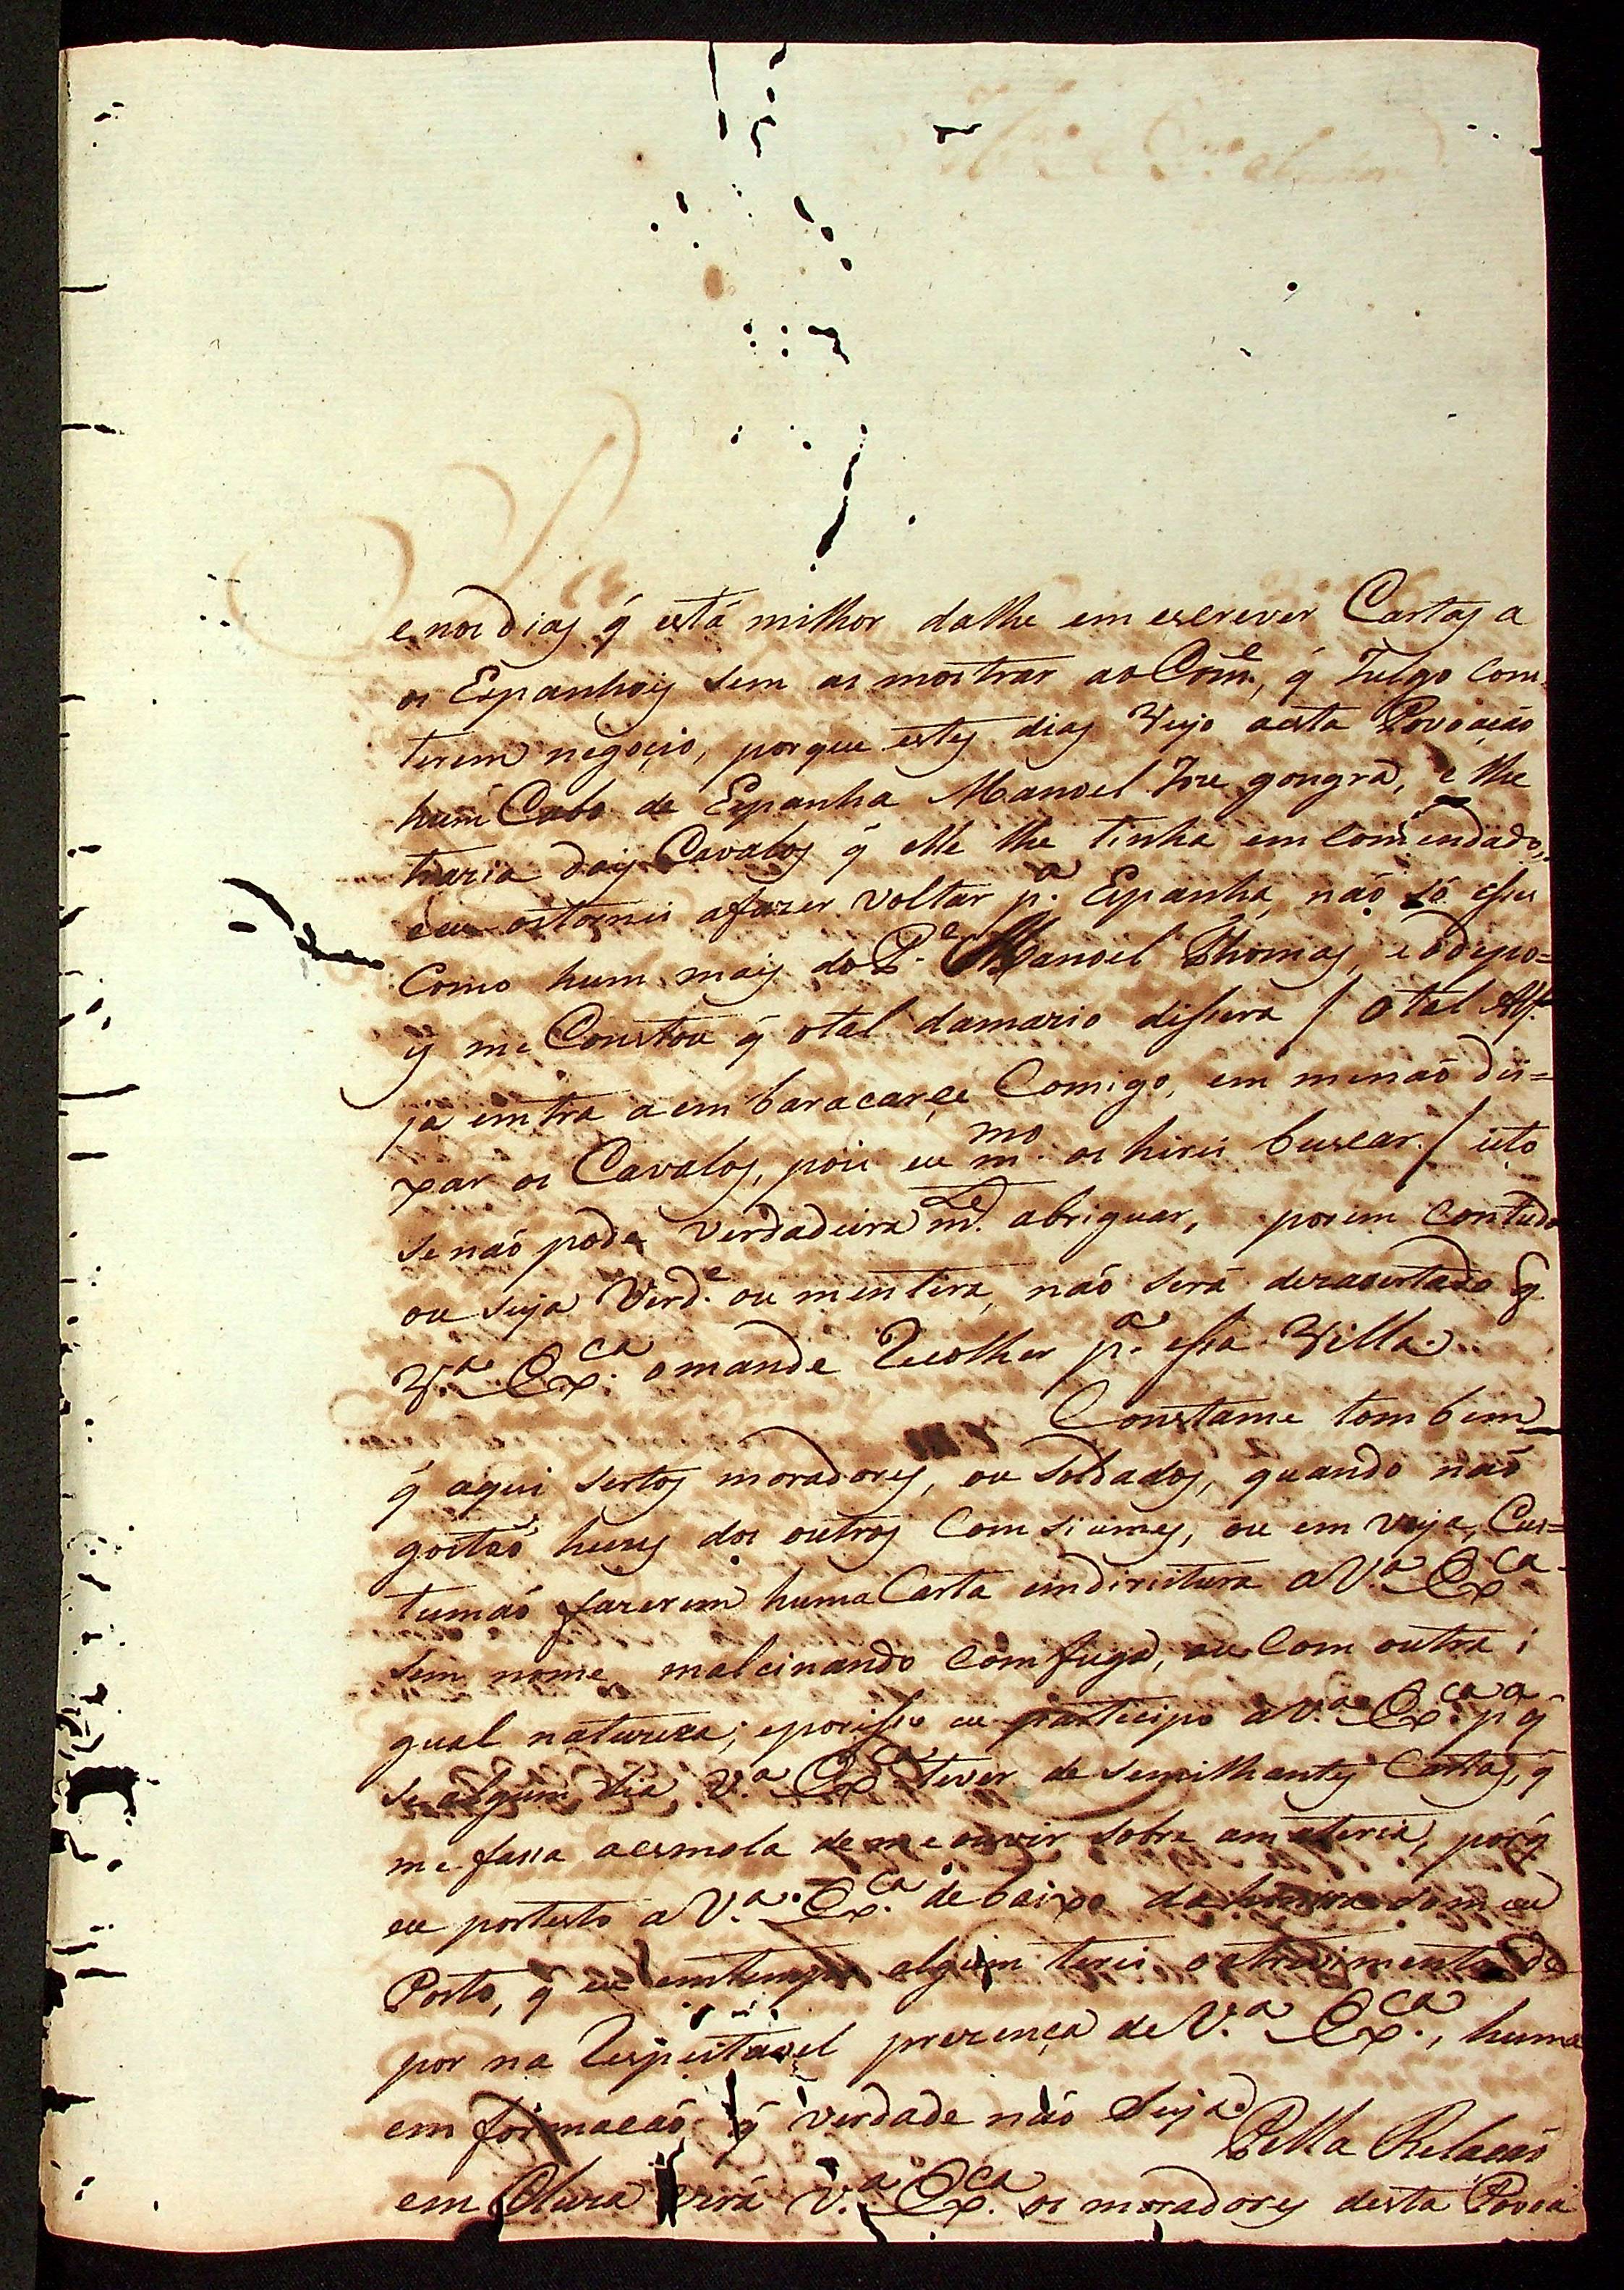 e nos dias q̃ está milhor dalhe em escrever Cartas a
os Espanhois sem as mostrar ao Com.e, q̃ Julgo com
terem negoçio, porque estes dias Veyo aesta Povoação
hum Cabo de Espanha Manoel Jose gongra, e lhe
trazia dois Cavalos q̃ elle lhe tinha em comendado,
e eu ostornei afazer voltar p.a Espanha, não só esses
Como hum mais do P.e Manoel Thomas, e odepo=
is me Constou q̃ otal damazio dissera / O tal Alf.es
já emtra a em baracarçe Comigo, em menão dei=
xar os Cavalos, pois eu m.mo os hirei buscar. / isto
se não pode Verdadeira m.te abriguar, porem Contudo
ou seja Verd.e ou mentira, não será dezasertado q̃
V.a Ex.ca omande Recolher p.a essa Villa.
Constame tombem
q̃ aqui sertos moradores, ou Soldados, quando não
gostão huns dos outros Com siumes, ou em veja, Cus=
tumão fazerem huma Carta emdireitura a V.a Ex.ca
sem nome, malcinando Com fuga, ou Com outra i
gual natureza; eporisso eu participo a V.a Ex.ca p.a q̃
se algum dia V.a Ex.ca tever de semilhantes Cartas, q̃
me fassa aesmola de me ouvir sobre amateria, porq̃
eu portesto a V.a Ex.ca debaixo da honrra do meu
Posto, q̃ eu emtempo algum terei oatrevimento de
por na Respeitavel prezença de V.a Ex.ca, huma
em formacão q̃ verdade não Seja.
Pella Relacão
em Cluza verá V.a Ex.ca os moradores desta Povoa